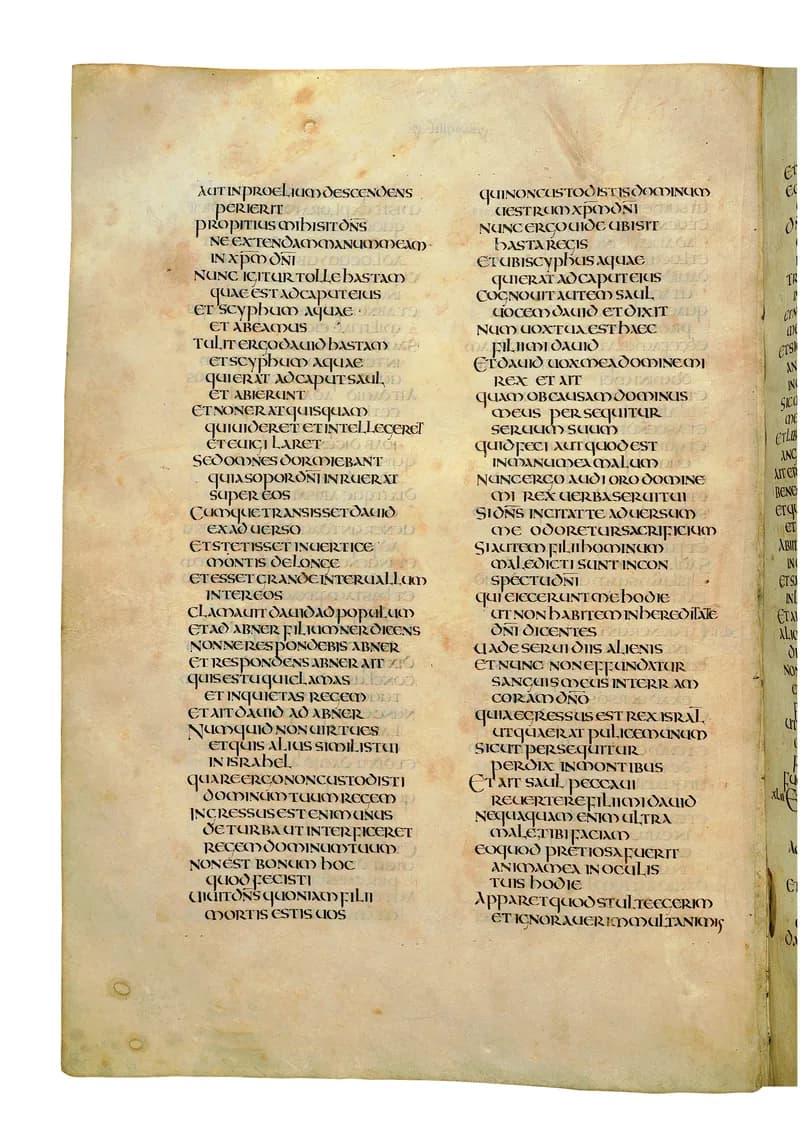 AUT IN PROELIUM DESCENDENS
PERIERIT
PROPITIUS MIHI SIT DN̄S
NE EXTENDAM MANUM MEAM
IN XP̄M DN̄I
NUNC IGITUR TOLLE HASTAM
QUAE EST AD CAPUT EIUS
ET SCYPHUM AQUAE
ET ABEAMUS
TULIT ERGO DAUID HASTAM
ET SCYPHUM AQUAE
QUI ERAT AD CAPUT SAUL
ET ABIERUNT
ET NON ERAT QUISQUAM
QUI UIDERET ET INTELLEGERET
ET EUIGILARET
SED OMNES DORMIEBANT
QUIA SOPOR DN̄I INRUERAT
SUPER EOS
CUMQUE TRANSISSET DAUID
EX ADUERSO
ET STETISSET IN UERTICE
MONTIS DE LONGE
ET ESSET GRANDE INTERUALLUM
INTER EOS
CLAMAUIT DAUID AD POPULUM
ET AD ABNER FILIUM NER DICENS
NONNE RESPONDEBIS ABNER
ET RESPONDENS ABNER AIT
QUIS ES TU QUI CLAMAS
ET INQUIETAS REGEM
ET AIT DAUID AD ABNER
NUMQUID NON UIR TU ES
ET QUIS ALIUS SIMILIS TUI
IN ISRAHEL
QUARE ERGO NON CUSTODISTI
DOMINUM TUUM REGEM
INGRESSUS EST ENIM UNUS
DE TURBA UT INTERFICERET
REGEM DOMINUM TUUM
NON EST BONUM HOC
QUOD FECISTI
UIUIT DN̄S QUONIAM FILII
MORTIS ESTIS UOS
QUI NON CUSTODISTIS DOMINUM
UESTRUM XP̄M DN̄I
NUNC ERGO UIDE UBI SIT
HASTA REGIS
ET UBI SCYPHUS AQUAE
QUI ERAT AD CAPUT EIUS
COGNOUIT AUTEM SAUL
UOCEM DAUID ET DIXIT
NUM UOX TUA EST HAEC
FILI MI DAUID
ET DAUID UOX MEA DOMINE MI
REX ET AIT
QUAM OB CAUSAM DOMINUS
MEUS PERSEQUITUR
SERUUM SUUM
QUID FECI AUT QUOD EST
IN MANU MEA MALUM
NUNC ERGO AUDI ORO DOMINE
MI REX UERBA SERUI TUI
SI DN̄S INCITAT TE ADUERSUM
ME ODORETUR SACRIFICIUM
SI AUTEM FILII HOMINUM
MALEDICTI SUNT IN CON
SPECTU DN̄I
QUI EIECERUNT ME HODIE
UT NON HABITEM IN HEREDITATE
DN̄I DICENTES
UADE SERUI DIIS ALIENIS
ET NUNC NON EFFUNDATUR
SANGUIS MEUS IN TERRAM
CORAM DN̄O
QUIA EGRESSUS EST REX ISRAL̄
UT QUAERAT PULICEM UNUM
SICUT PERSEQUITUR
PERDIX IN MONTIBUS
ET AIT SAUL PECCAUI
REUERTERE FILI MI DAUID
NEQUAQUAM ENIM ULTRA
MALE TIBI FACIAM
EO QUOD PRETIOSA FUERIT
ANIMA MEA IN OCULIS
TUIS HODIE
APPARET QUOD STULTE EGERIM
ET IGNORAUERIM MULTA NIMIS